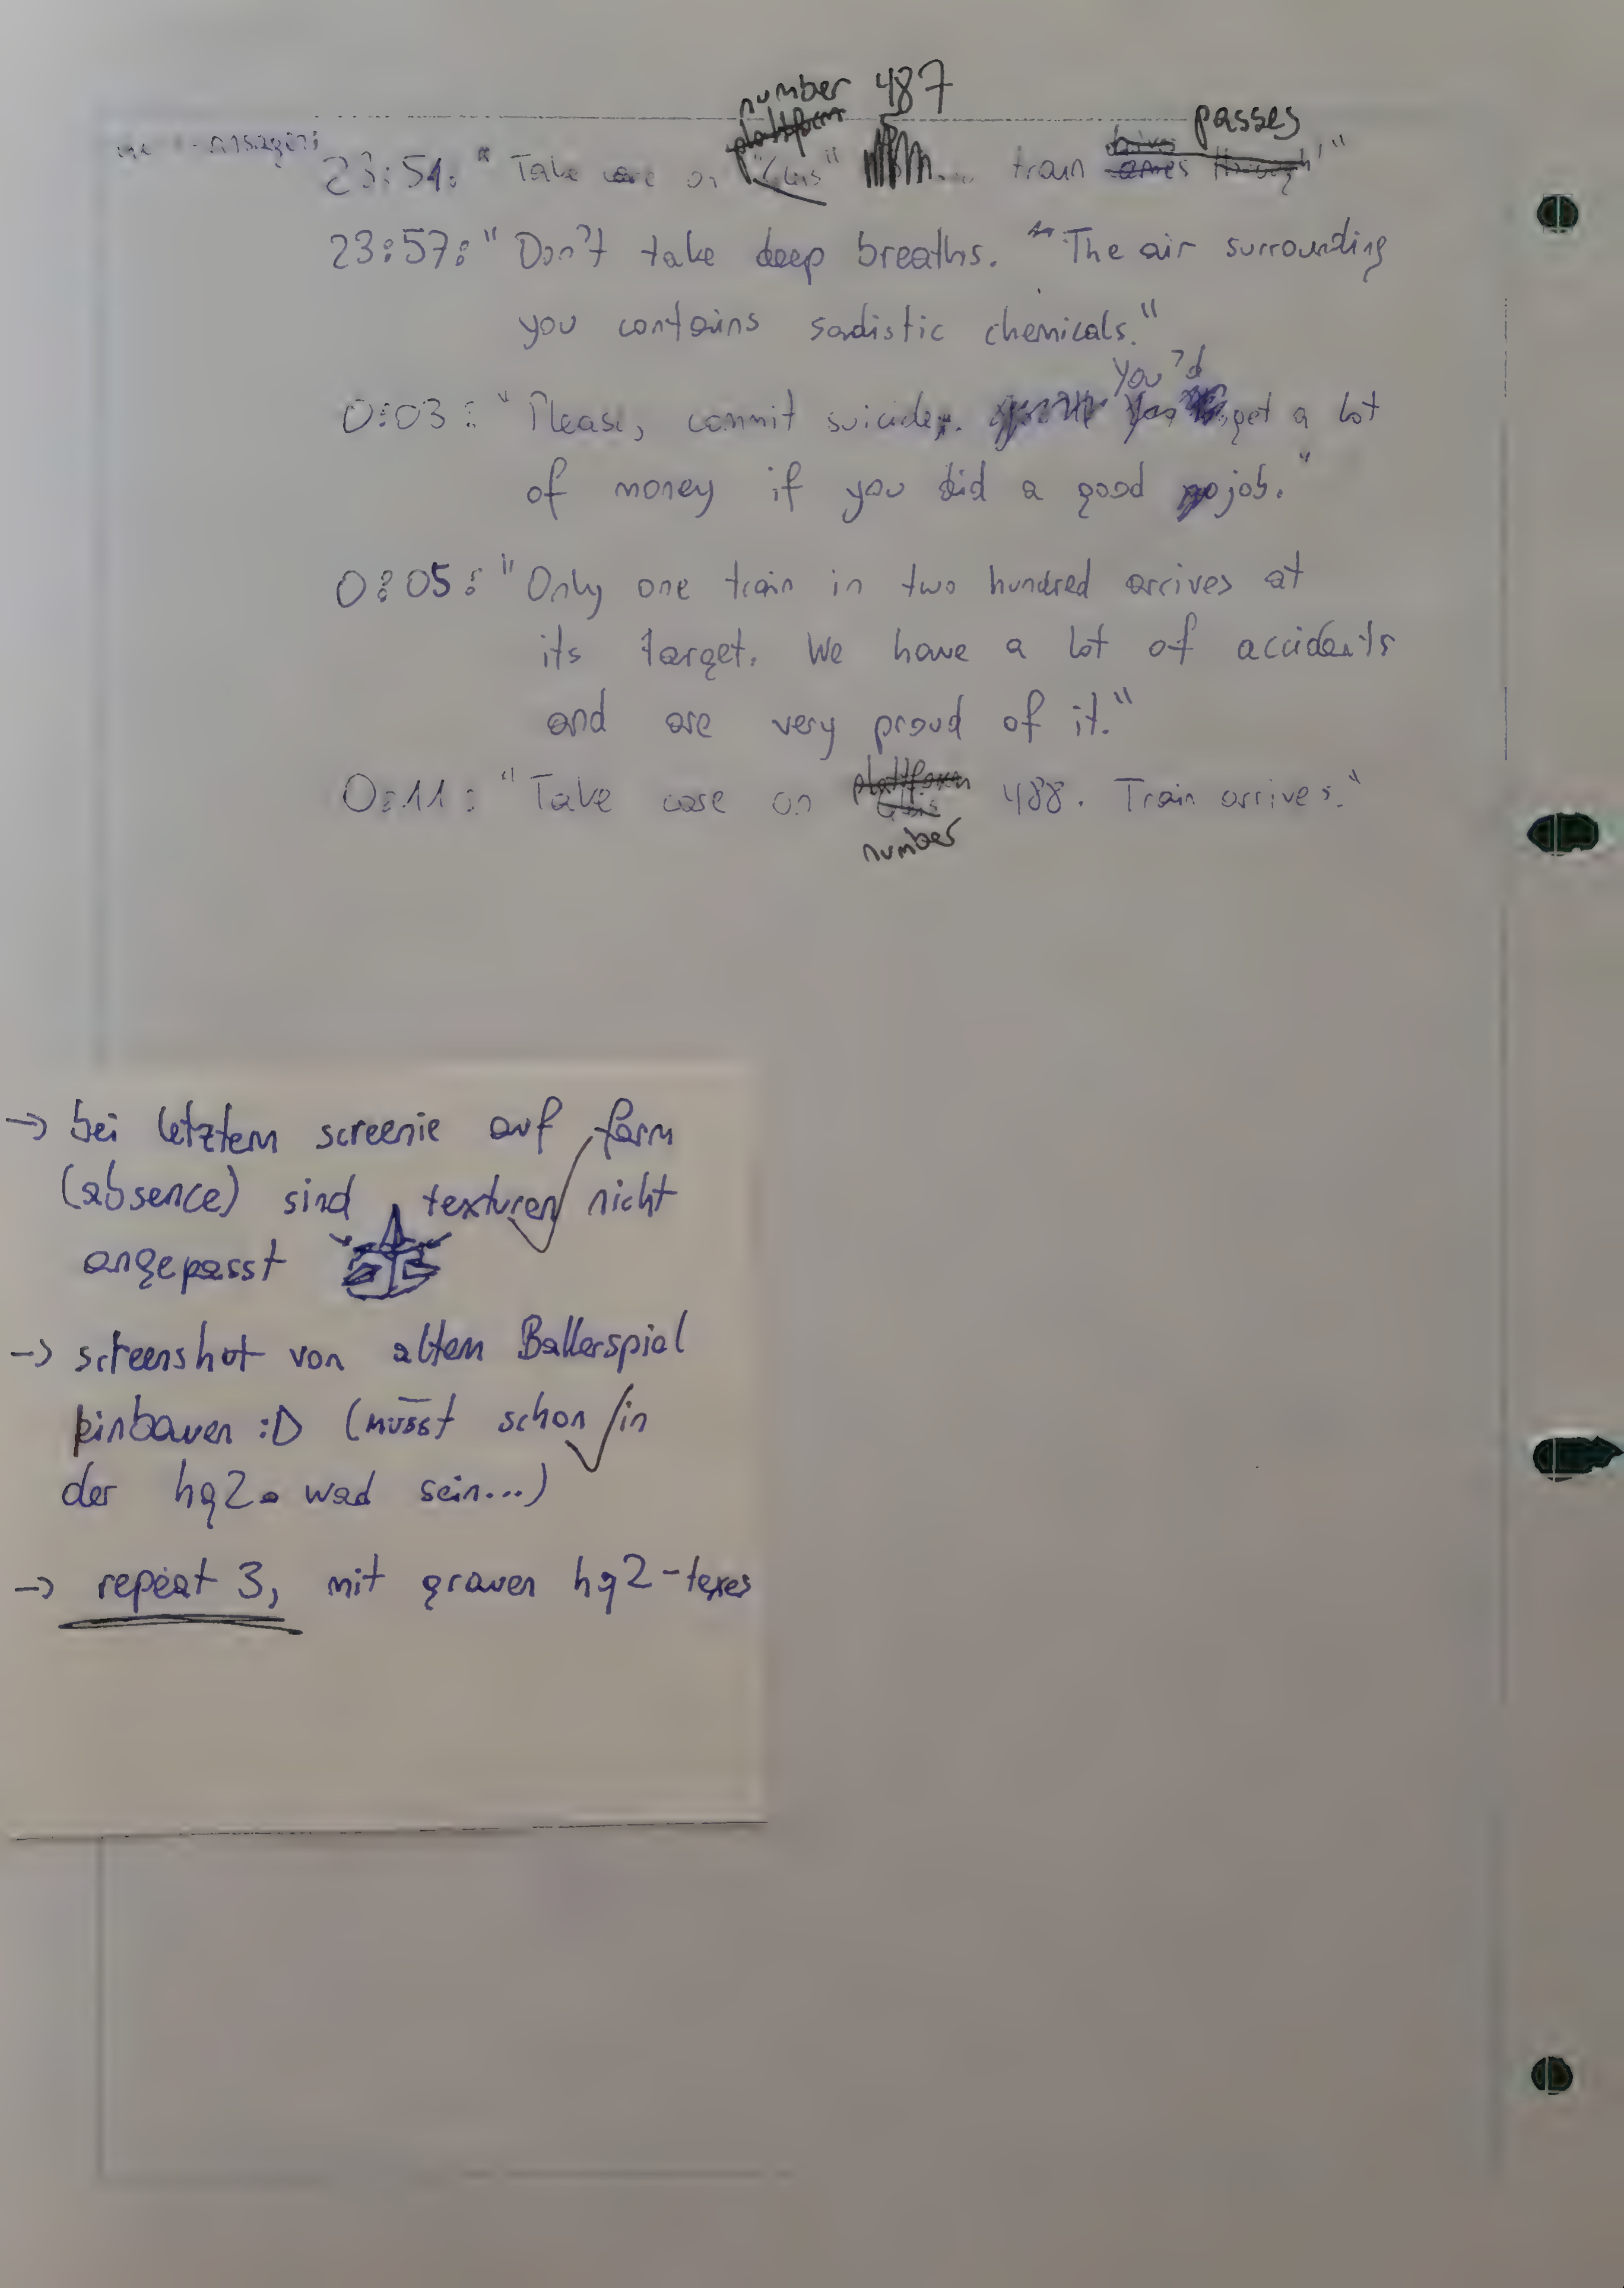 number 487
plattform passes
23:51: "Take care on "Gleis" train drives
comes through!"
23:57: "Don't take deep breaths. The air surrounding
you contains sadistic chemicals."
You'd
0:03: "Please, commit suicide. You get a lot
of money if you did a good job."
0:05: "Only one train in two hundred arrives at
its target. We have a lot of accidents
and are very proud of it."
plattform
0:11: "Take care on Gleis 488. Train arrives."
number
→ bei letztem screenie auf farm
(absence) sind texturen nicht
angepasst
→ screenshot von altem Ballerspiel
einbauen :D (müsst schon in
der hq2.wad sein...)
→ repeat 3, mit grauen hq2-texes